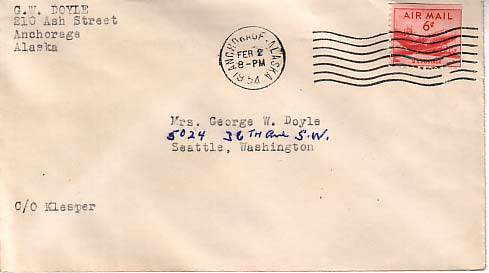 G.W. DOYLE
210 Ash Street
Anchorage
Alaska
ANCHORAGE, ALASKA
FEB 2
8-PM
54
AIR MAIL
6¢
Mrs. George W. Doyle
5024 36TH Ave S.W.
Seattle, Washington
C/O Klesper